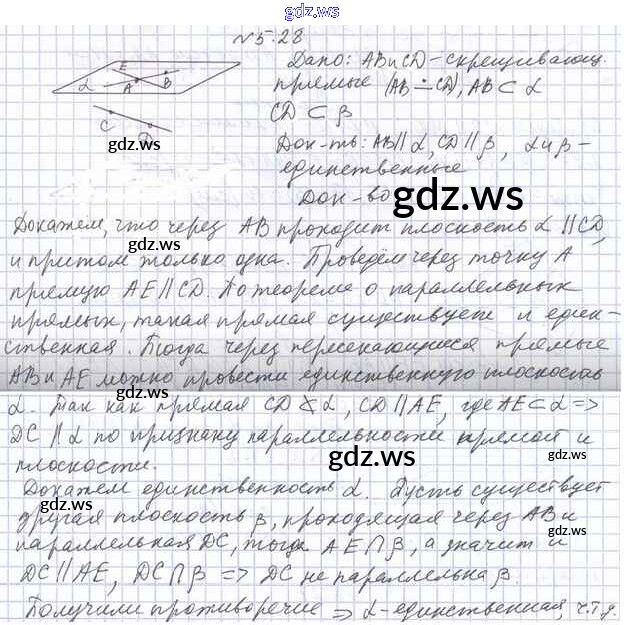 gdz.ws
№5.28
E
α A B
C
D
Дано: AB и CD - скрещивающ.
прямые (AB ∸ CD), AB ⊂ α
CD ⊂ β
Док-ть: AB ∥ α, CD ∥ β, α и β -
единственные
Док-во
gdz.ws
gdz.ws
Докажем, что через AB проходит плоскость α ∥ CD,
и притом только одна. Проведём через точку A
прямую AE ∥ CD. По теореме о параллельных
прямых, такая прямая существует и един-
ственная. Тогда через пересекающиеся прямые
AB и AE можно провести единственную плоскость
α. Так как прямая CD ⊄ α, CD ∥ AE, где AE ⊂ α =>
DC ∥ α по признаку параллельности прямой и
плоскости.
gdz.ws
Докажем единственность α. Пусть существует
другая плоскость β, проходящая через AB и
gdz.ws
gdz.ws
параллельная DC, тогда AE ∩ β, а значит и
DC ∥ AE, DC ∩ β => DC не параллельна β.
Получили противоречие => α - единственная, ч.т.д.
gdz.ws